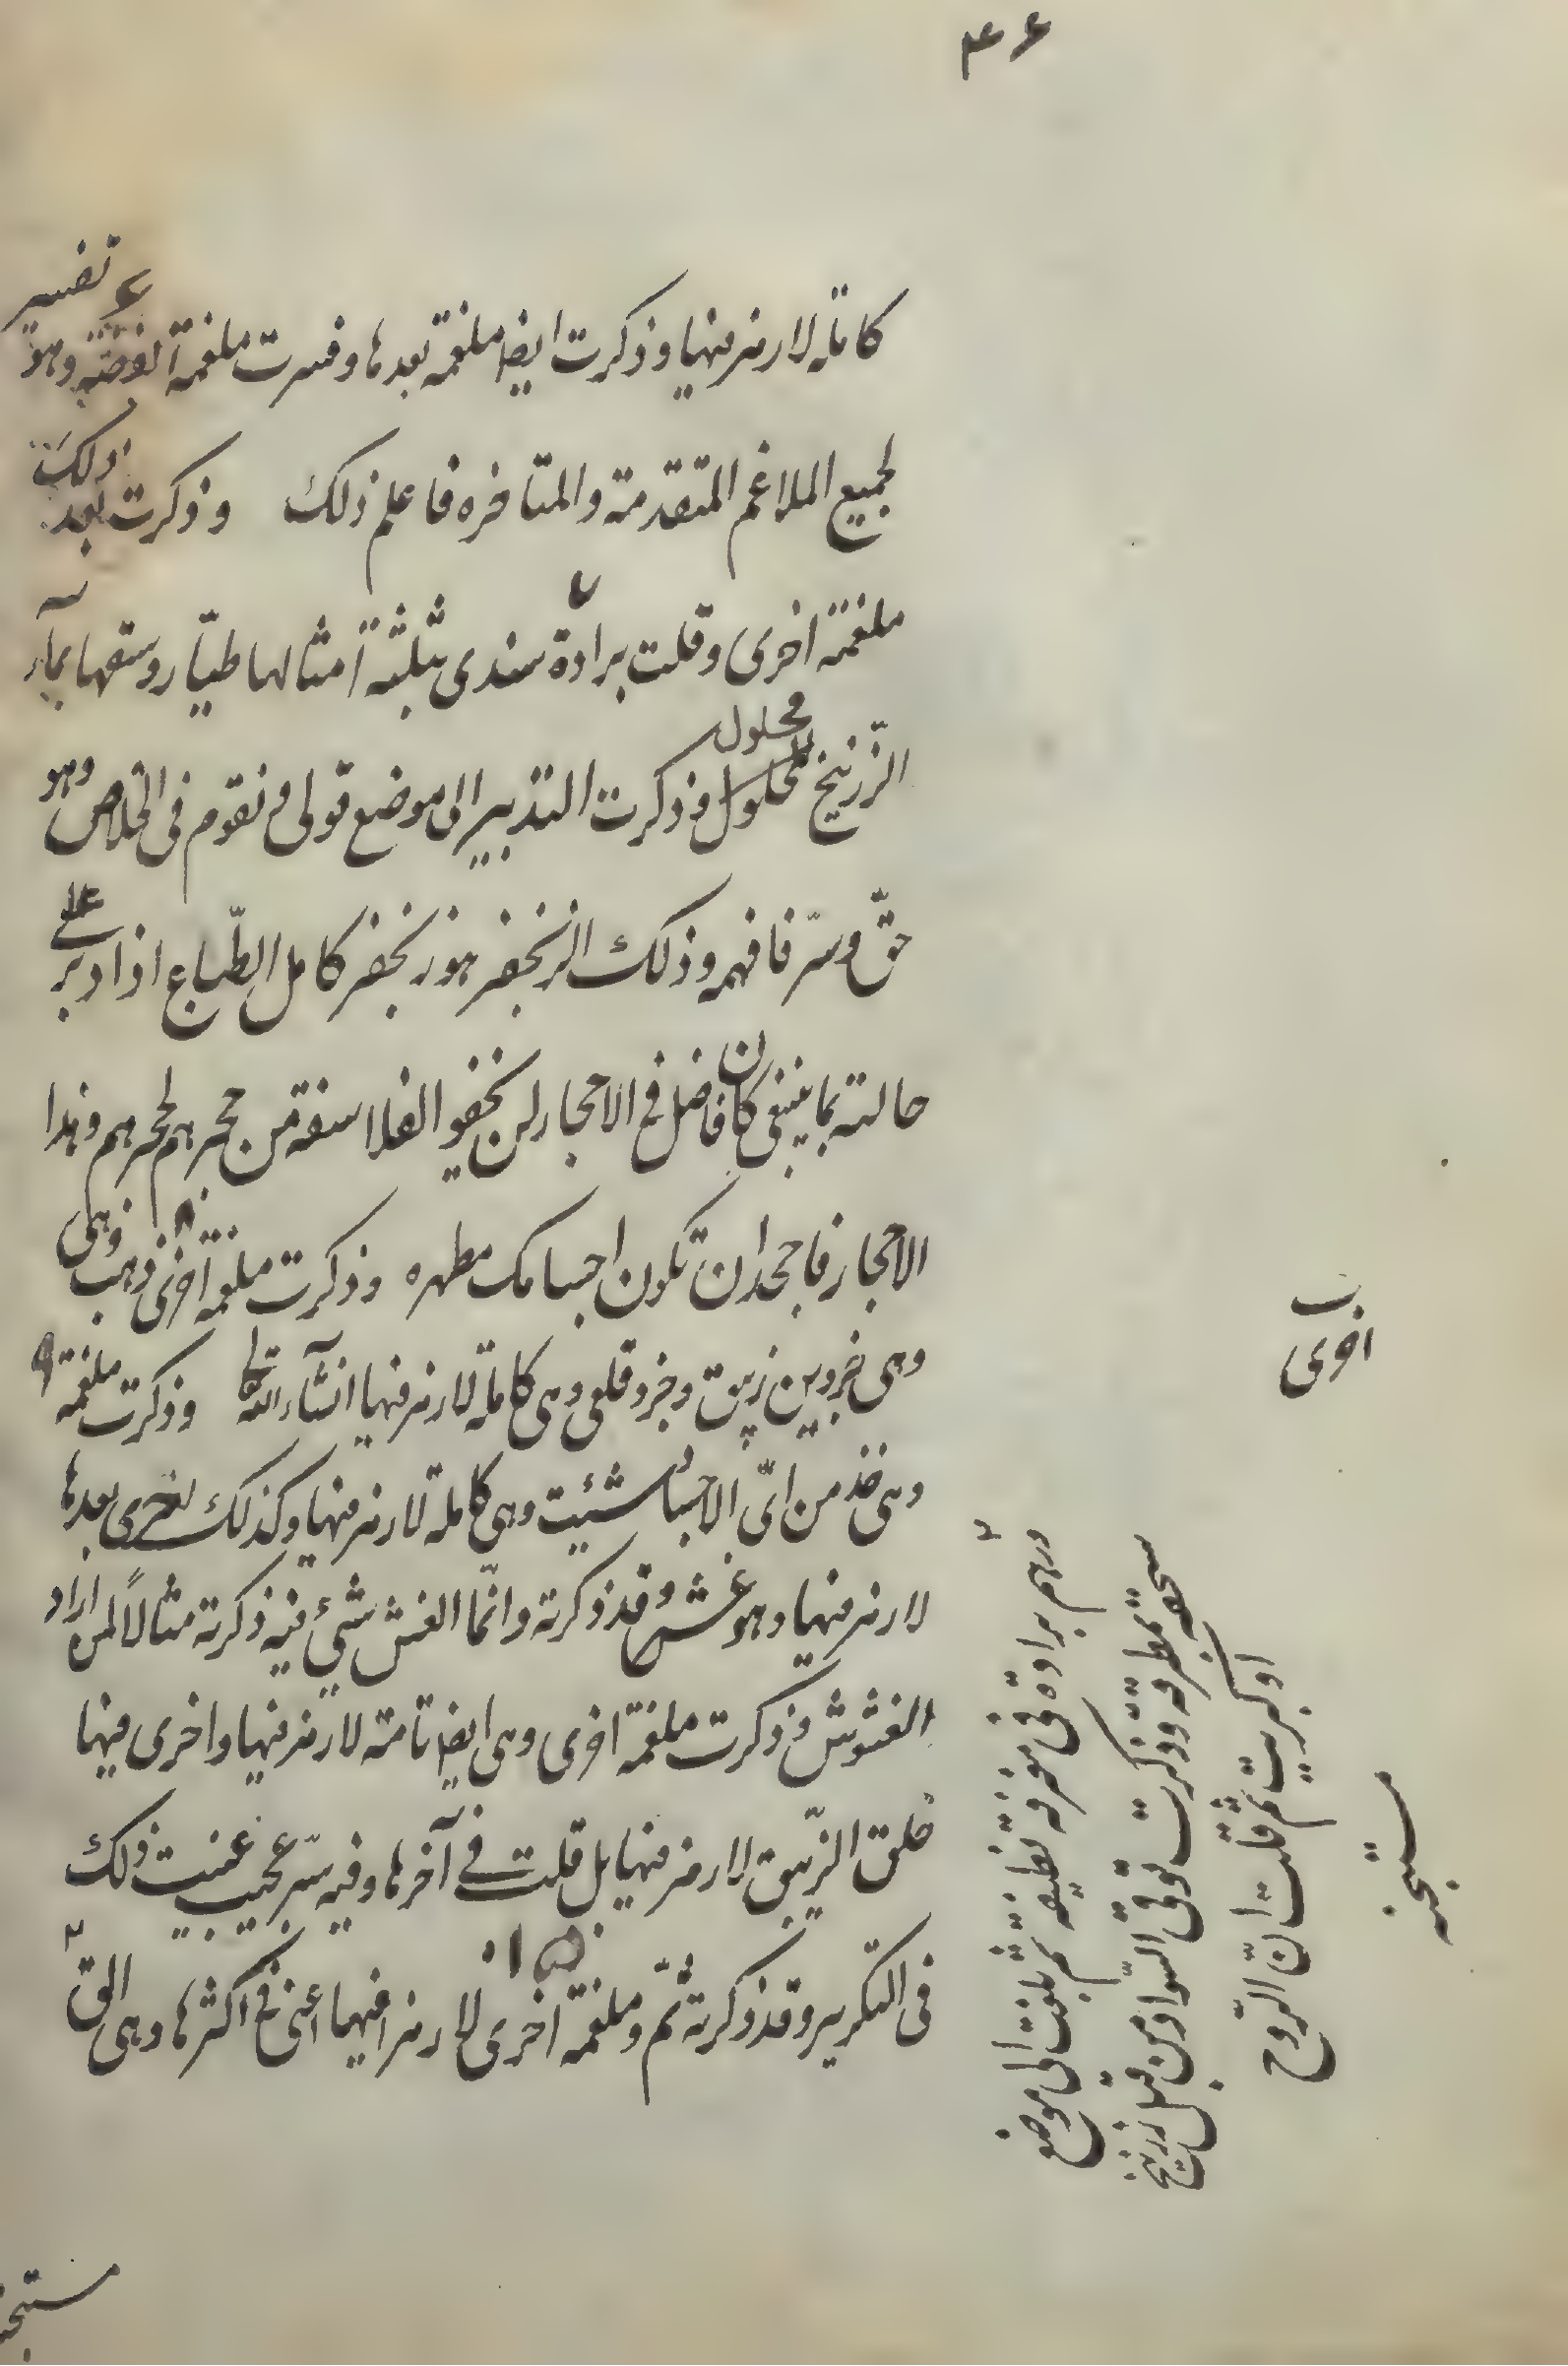 ٤٦
كاملة لا رمز فيها وذكرت ايضا ملغمة بعدها وفسرت ملغمة الفضة وهو تفسير
لجميع الملاغم المتقدمة والمتاخره فاعلم ذلك وذكرت بعد ذلك
ملغمة اخرى وقلت برادة سندى بثلثة امثالها طيار وسقها بماء
الزرنيخ محلول وذكرت التدبير الى موضع قولى و نقوم فى الخلاص وهو
حق وسر فافهمه وذلك الزنجفر هو زنجفر كامل الطباع اذا دبر على
حالته بما ينبغى كان فاضل فى الاحجار لن يخفو الفلاسفة من حجرهم لحجرهم وهذا
الاحجار فاجحد ان تكون اجسامك مطهره وذكرت ملغمة اخرى ذهب وهى
وهى جزوين زيبق وجزو قلعى وهى كاملة لا رمز فيها انشاء الله تعالى وذكرت ملغمة ٩
وهى خذ من اىّ الاجساد شئت وهى كاملة لا رمز فيها وكذلك اخرى بعدها
لا رمز فيها وهو غش وقد ذكرته وانما الغش شىء فيه ذكرته مثالاً لمن اراد
الغشوش وذكرت ملغمة اخرى وهى ايضا تامة لا رمز فيها واخرى فيها
خلق الزيبق لا رمز فيها بل قلت فى آخرها وفيه سر عجيب عنيت ذلك
فى التكرير وقد ذكرته ثمّ وملغمة اخرى لا رمز فيها اعنى فى اكثرها وهى الق
اخرى
درهم برادة فى مغرفة نظيفه ثم بلغت الى موضع
سحقه بمطرقه وذكرت توقى السواد من قبل زرنيخ
او كبريت ثم قلت انّ الروح
ستجنه